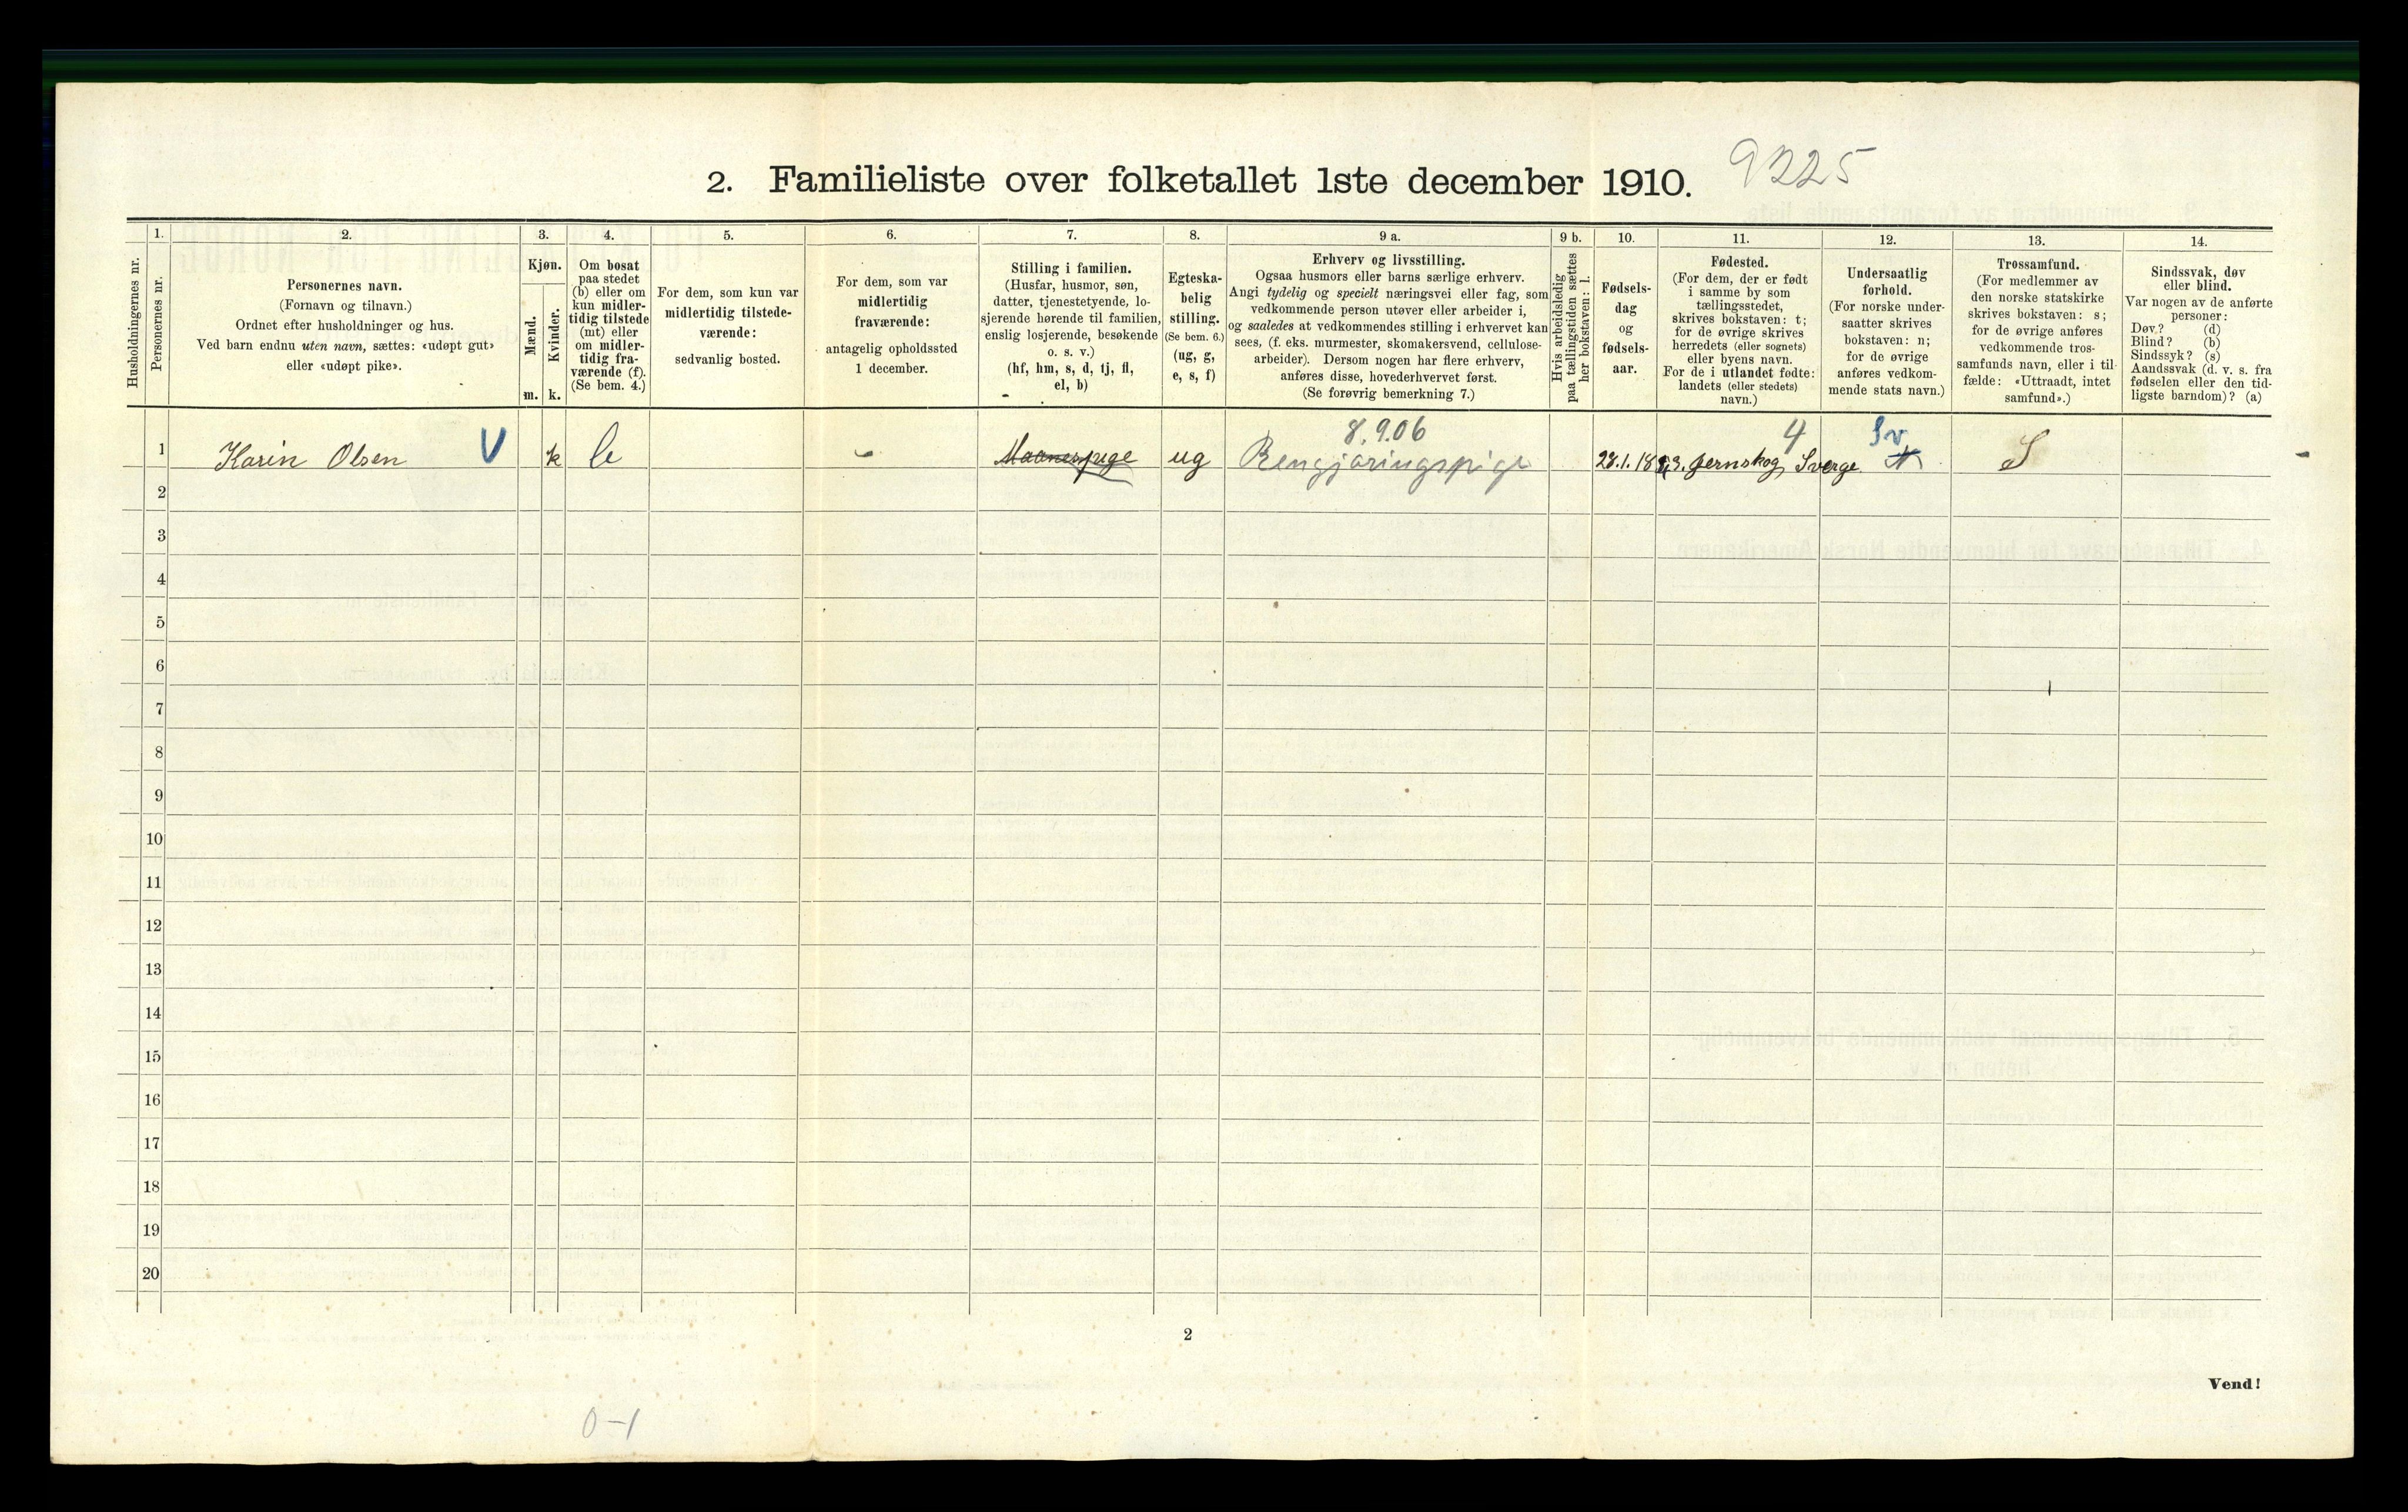 2. Familieliste over folketallet 1ste december 1910.
9225
Husholdningernes nr.
1.
Personernes nr.
2.
Personernes navn.
(Fornavn og tilnavn.)
Ordnet efter husholdninger og hus.
Ved barn endnu uten navn, sættes: «udøpt gut»
eller «udøpt pike».
3.
Kjøn.
Mænd.
Kvinder.
m. k.
4.
Om bosat
paa stedet
(b) eller om
kun midler-
tidig tilstede
(mt) eller
om midler-
tidig fra-
værende (f).
(Se bem. 4.)
5.
For dem, som kun var
midlertidig tilstede-
værende:
sedvanlig bosted.
6.
For dem, som var
midlertidig
fraværende:
antagelig opholdssted
1 december.
7.
Stilling i familien.
(Husfar, husmor, søn,
datter, tjenestetyende, lo-
sjerende hørende til familien,
enslig losjerende, besøkende
o. s. v.)
(hf, hm, s, d, tj, fl,
el, b)
8.
Egteska-
belig
stilling.
(Se bem. 6.)
(ug, g,
e, s, f)
9 a.
Erhverv og livsstilling.
Ogsaa husmors eller barns særlige erhverv.
Angi tydelig og specielt næringsvei eller fag, som
vedkommende person utøver eller arbeider i,
og saaledes at vedkommendes stilling i erhvervet kan
sees, (f. eks. murmester, skomakersvend, cellulose-
arbeider). Dersom nogen har flere erhverv,
anføres disse, hovederhvervet først.
(Se forøvrig bemerkning 7.)
9 b.
Hvis arbeidsledig
paa tællingstiden sættes
her bokstaven: l.
10.
Fødsels-
dag
og
fødsels-
aar.
11.
Fødested.
(For dem, der er født
i samme by som
tællingsstedet,
skrives bokstaven: t;
for de øvrige skrives
herredets (eller sognets)
eller byens navn.
For de i utlandet fødte:
landets (eller stedets)
navn.)
12.
Undersaatlig
forhold.
(For norske under-
saatter skrives
bokstaven: n;
for de øvrige
anføres vedkom-
mende stats navn.)
13.
Trossamfund.
(For medlemmer av
den norske statskirke
skrives bokstaven: s;
for de øvrige anføres
vedkommende tros-
samfunds navn, eller i til-
fælde: «Uttraadt, intet
samfund».)
14.
Sindssvak, døv
eller blind.
Var nogen av de anførte
personer:
Døv? (d)
Blind? (b)
Sindssyk? (s)
Aandssvak (d. v. s. fra
fødselen eller den tid-
ligste barndom)? (a)
8.9.06 4 Sv
1 Karin Olsen V k b Maanespige ug Rengjøringspige Jernskog, Sverge N S
2
3
4
5
6
7
8
9
10
11
12
13
14
15
16
17
18
19
20
2
Vend!
0-1